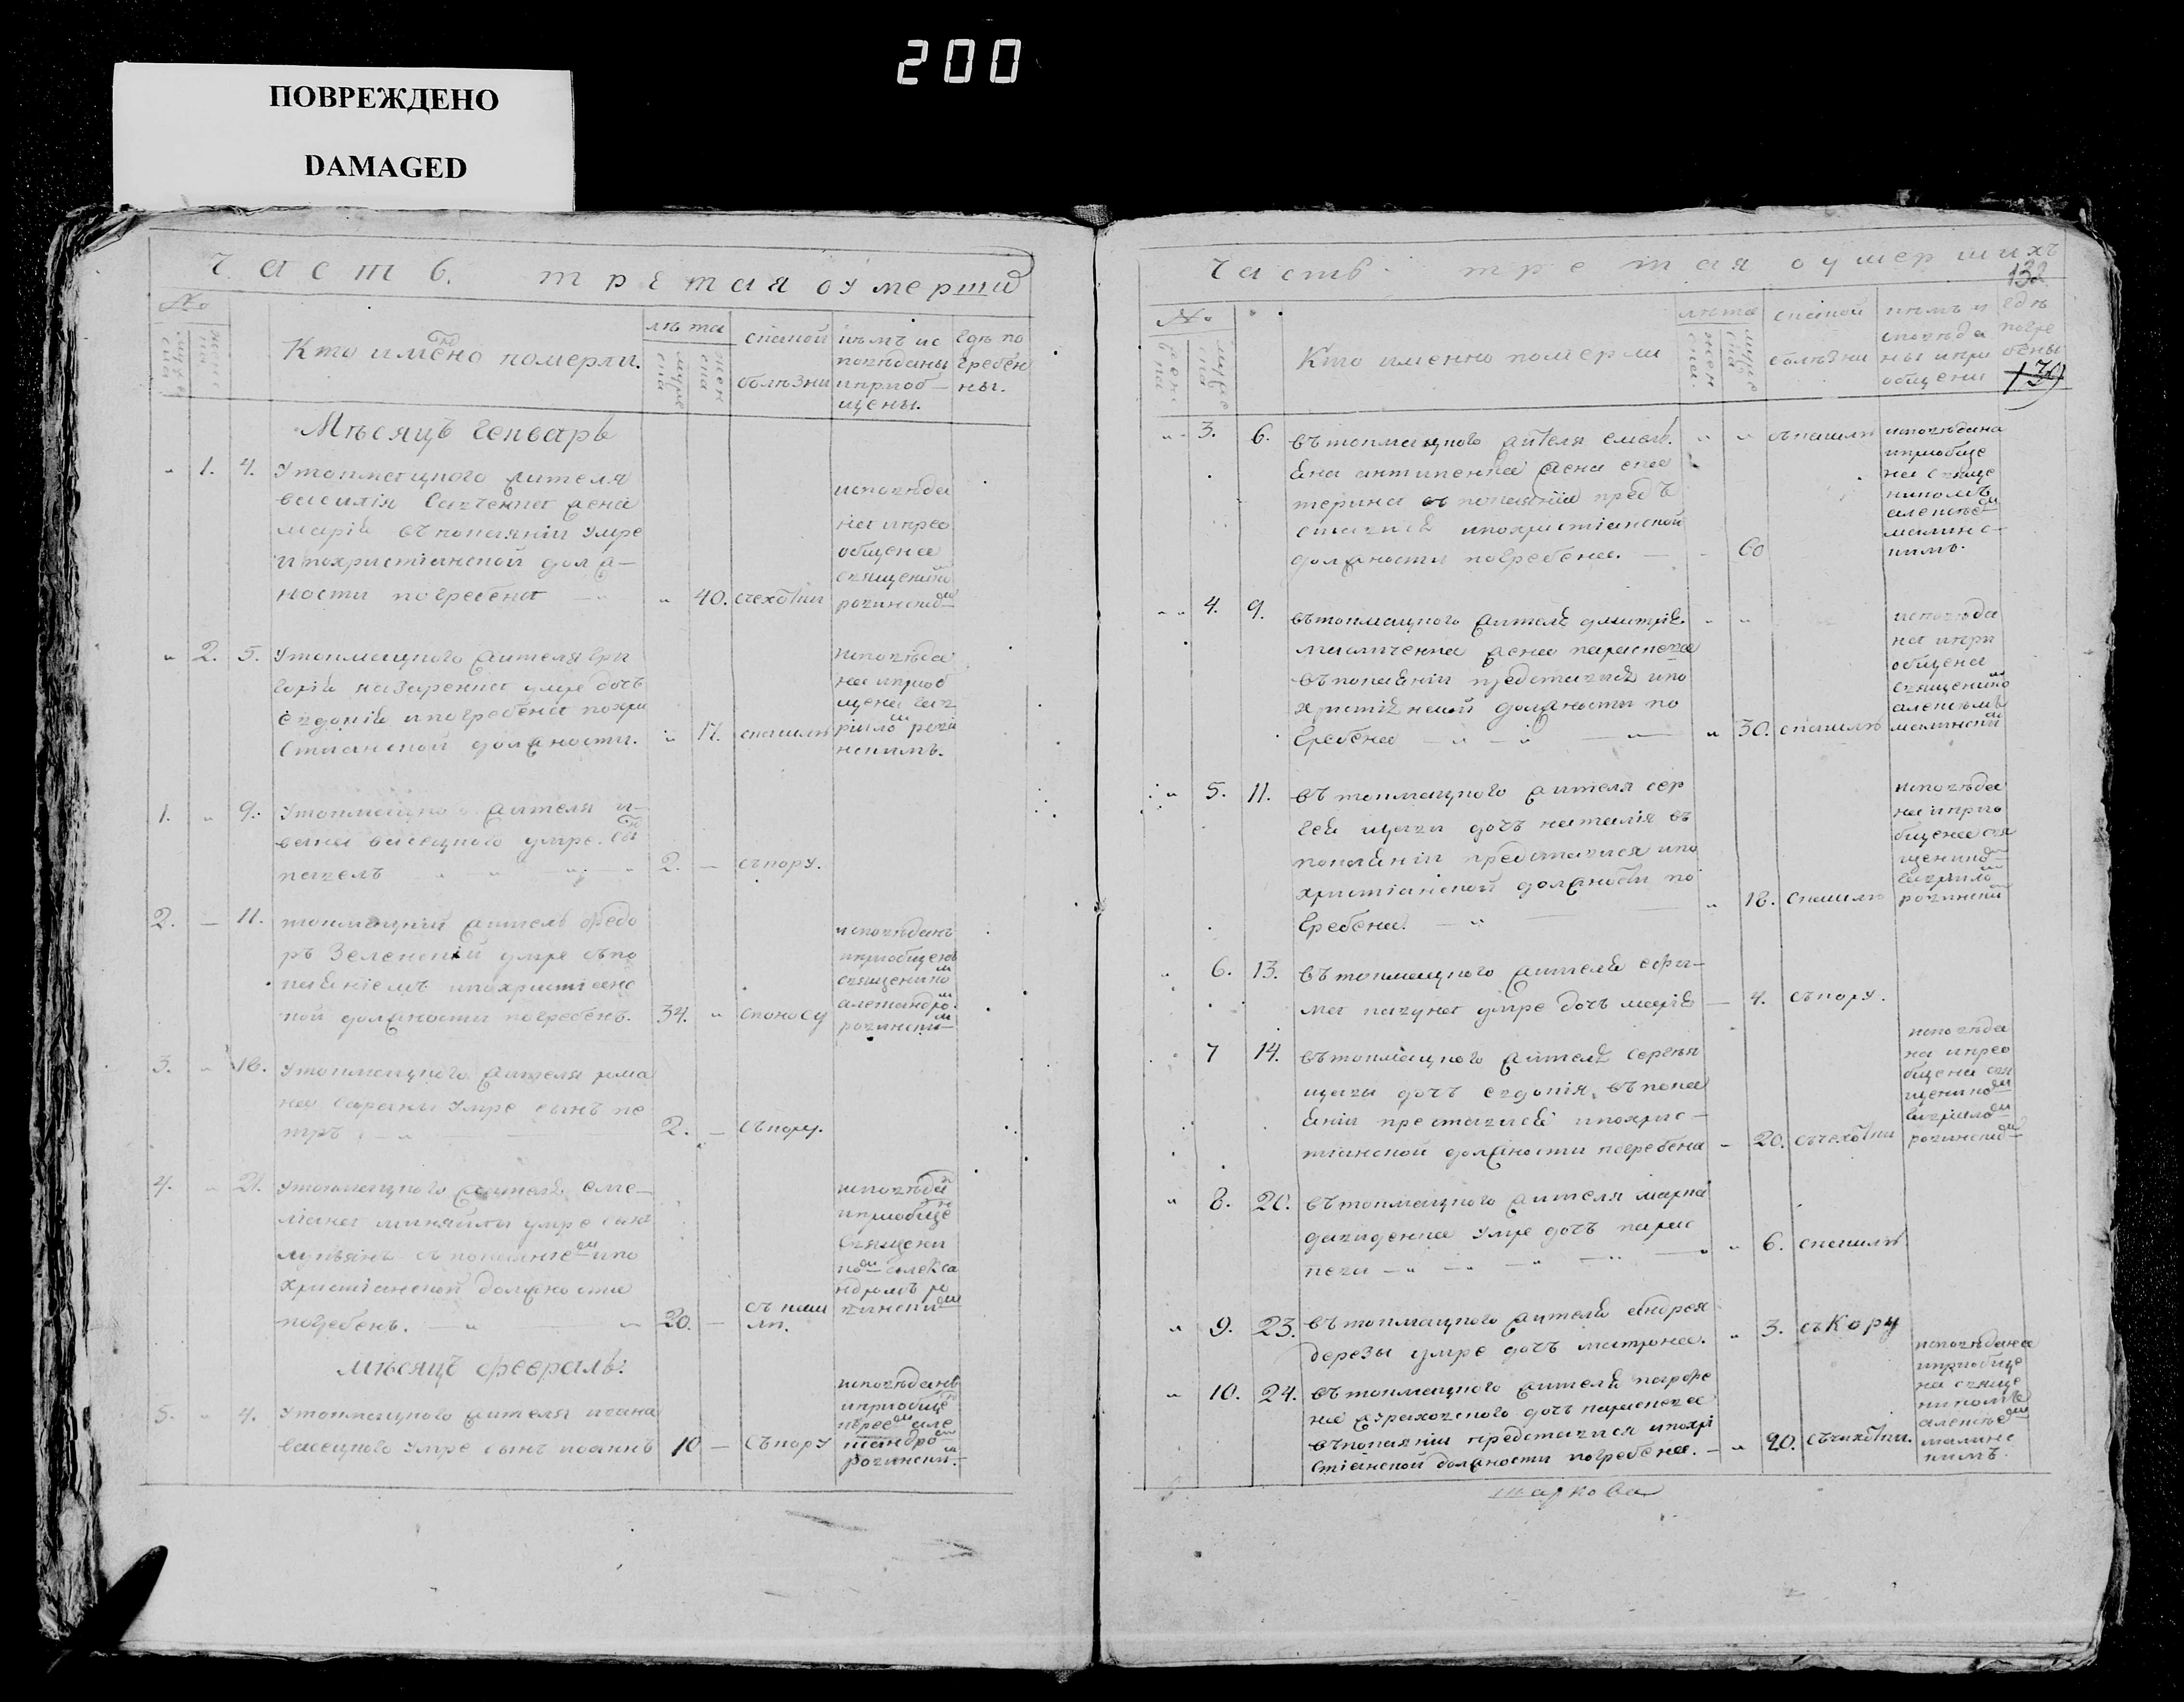 200
ПОВРЕЖДЕНО
DAMAGED
Часть третая оумерши
№
Кто имено померли.
лѣта
какой
болѣзни
кѣмъ ис
повѣданы
иприоб
щены.
гдѣ по
гребен
ны.
Мѣсяцъ генварь
1. 4. У топмацного жителя
василія савченка жена
марія въ покаяніи умре
и похристіанской долж
ности погребена
40. счехотки
исповѣда
на иприо
общена
священико
рочинским
2. 5. У топмацного жителя гри
горія назаренка умре дочь
евдокія и погребена похри
стианской должности.
17. скашлю
исповѣда
на иприоб
щена гав
рилом рачи
нскимъ.
1. 9. У топмацного жителя и
вана васецкого умре сы
павелъ
2. съкору.
2. 11. топмацкий житель федо
ръ Зеленский умре съпо
каяніемъ ипохристіанс
кой должности погребенъ.
34. споносу
исповѣданъ
иприобщенъ
священико
александро
рочински
3. 16. У топмацного жителя рома
на умре сынъ пе
тръ
2. съкору.
4. 21. У топмацного жителя еме
ліана умре сынъ
лукіянъ съ покаяніем ипо
христіанской должности
погребенъ.
20. съ каш
лю.
исповѣда
иприобще
священи
ком алекса
ндромъ ро
чинским
мѣсяцъ февраль:
5. 4. У топмацного жителя ивана
васецкого умре сынъ иоаннъ
10 съкору
исповѣданъ
иприобще
иерее але
ксандро
рочински
Часть третая оумершихъ
132
№
Кто именно померли
лѣта
какой
болѣзни
кѣмъ и
споведа
ны ипри
общени
гдѣ
погре
бены
139
3. 6. въ топмацного жителя емель
яна антипенка жена ека
терина въ покаяніи предъ
ставися ипохристіанской
должности погребена.
60
съкашлю
исповѣдана
иприобще
на свяще
никомъ
алексѣем
малинс
кимъ.
4. 9. въ топмацного жителя дмитрія
жена параскева
въ покаяніи представися ипо
христіянской должности по
гребена
30. скашлю
исповѣда
на ипри
общена
священико
алексѣмъ
малински
5. 11. въ топмацного жителя сер
гея дочь наталія въ
покаяніи представися ипо
христіанской должности по
гребена.
18. скашлю
исповѣда
на иприо
бщена свя
щеником
гаврило
рочински
6. 13. въ топмацного жителя ефи
ма умре дочь марія
4. съкору.
7 14. въ топмацного жителя сергѣя
дочь евдокія въ пока
яніи преставися ипохрис
тіанской должности погребена
20. счехотки
исповѣда
на иприо
бщена свя
щеником
гаврилом
рочинским
8. 20. въ топмацного жителя марка
давиденка умре дочь парас
кева
6. скашлю
9. 23. въ топмацного жителя андрея
березы умре дочь матрона.
3. съкору
10. 24. въ топмацного жителя парфе
на дочь параскева
въпокаяніи представися ипохри
стіанской должности погребена.
20. съчихотки.
исповѣдана
иприобще
на свяще
никомъ
алексѣем
малинс
кимъ.